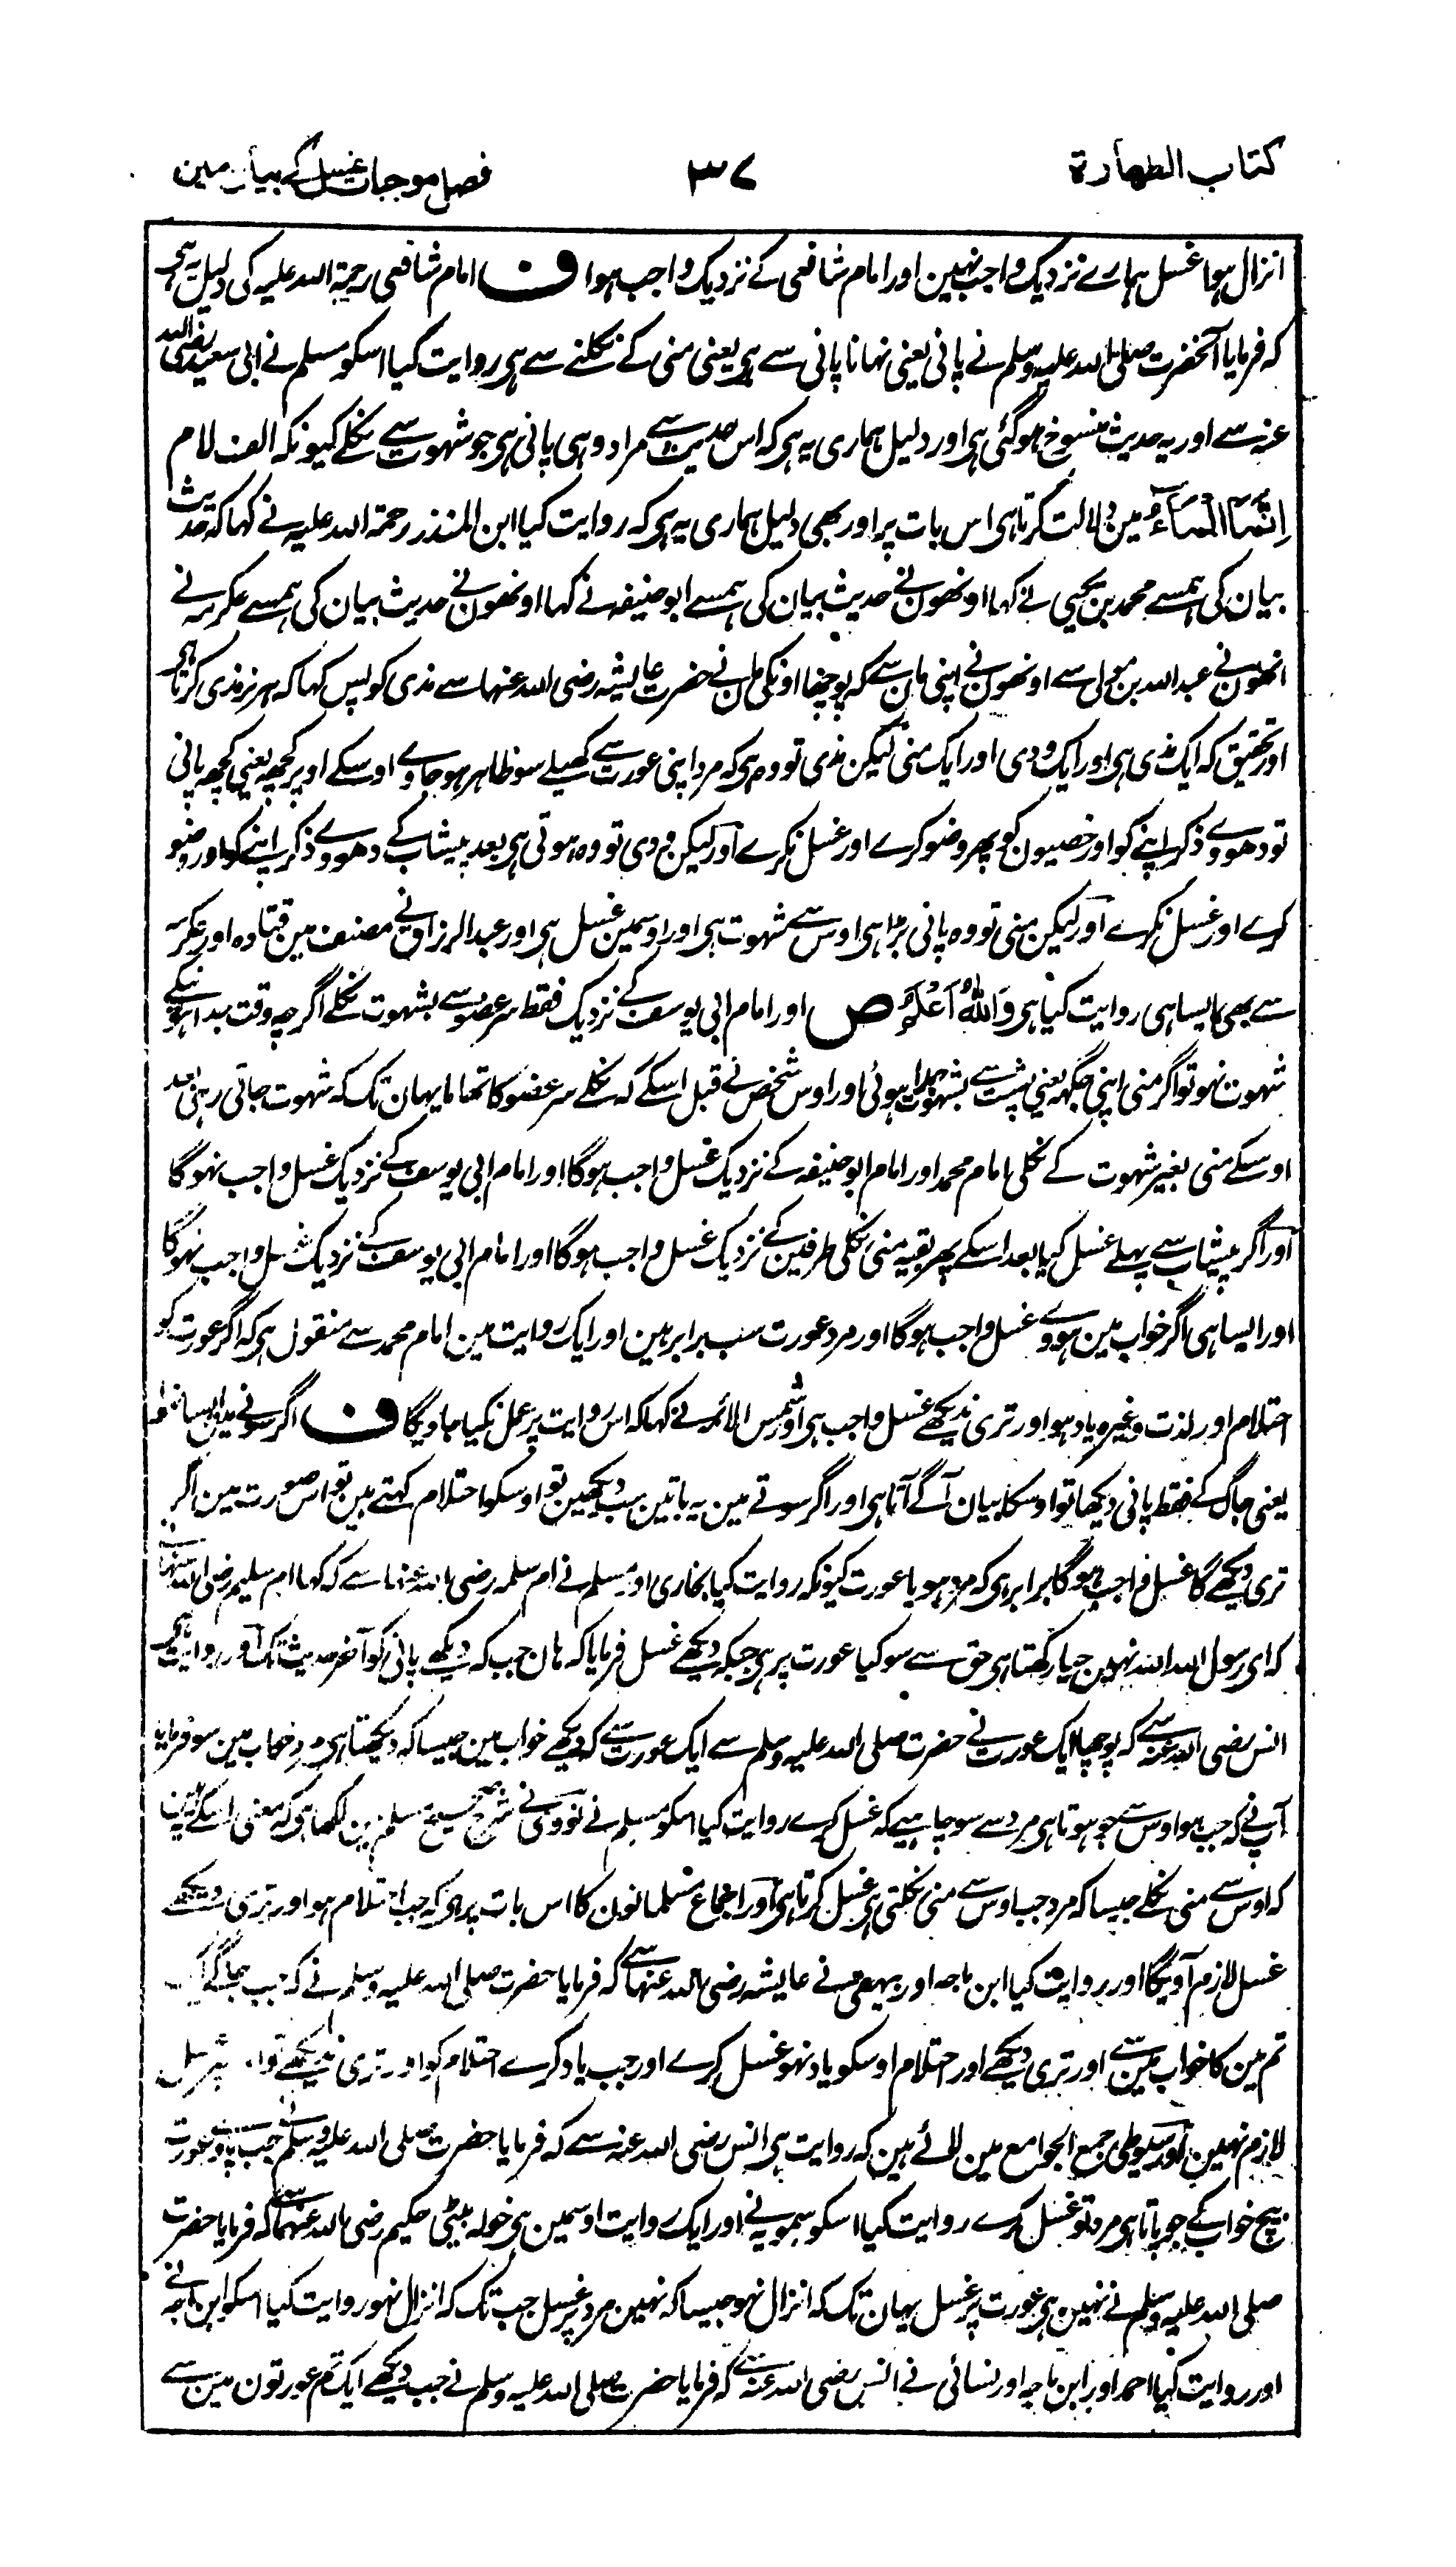 کتاب الطهارة
۳۷
فصل موجبات غسل کے بیان مین
انزال ہوا غسل ہمارے نزدیک واجب نہین اور امام شافعی کے نزدیک واجب ہوا ف امام شافعی رحمۃ اللہ علیہ کی دلیل یہ ہی
کہ فرمایا آنحضرت صلی اللہ علیہ وسلم نے پانی یعنی نہانا پانی سے ہی یعنی منی کے نکلنے سے ہی روایت کیا اسکو مسلم نے ابی سعید رضی اللہ
عنہ سے اور یہ حدیث منسوخ ہوگئی ہی اور دلیل ہماری یہ ہی کہ اس حدیث سے مراد وہی پانی ہی جو شہوت سے نکلے کیونکہ الف لام
اِنَّمَا الْمَاءُ مین دلالت کرتا ہی اس بات پر اور بھی دلیل ہماری یہ ہی کہ روایت کیا ابن المنذر رحمۃ اللہ علیہ نے کہا کہ حدیث
بیان کی ہمسے محمد بن یحیی نے کہا اونھون نے حدیث بیان کی ہمسے ابو حنیفہ نے کہا اونھون نے حدیث بیان کی ہمسے عکرمہ نے
انھون نے عبد اللہ بن مولی سے اونھون نے اپنی مان سے کہ پوچھا اونکی مان نے حضرت عایشہ رضی اللہ عنہا سے مذی کو پس کہا کہ ہر نر مذی کرتا ہی
اور تحقیق کہ ایک مذی ہی اور ایک ودی اور ایک منی لیکن مذی تو وہ ہی کہ مرد اپنی عورت سے کھیلے سو ظاہر ہو جاوے اوسکے اوپر کچھ یعنی کچھ پانی
تو دھووے ذکر اپنے کو اور خصیون کو پھر وضو کرے اور غسل نکرے اور لیکن ودی تو وہ ہوتی ہی بعد پیشاب کے دھووے ذکر اپنے کو اور وضو
کرے اور غسل نکرے اور لیکن منی تو وہ پانی بڑا ہی اوس سے شہوت ہی اور اوسمین غسل ہی اور عبد الرزاق نے مصنف مین قتادہ اور عکرمہ
سے بھی ایسا ہی روایت کیا ہی وَاللّٰہُ اَعْلَمُ ص اور امام ابی یوسف کے نزدیک فقط سر عضو سے بشہوت نکلے اگرچہ وقت جدا ہونیکے
شہوت نہو تو اگر منی اپنی جگہ یعنی پشت سے بشہوت جدا ہوئی اور اوس شخص نے قبل اسکے کہ نکلے سر عضو کا تھاما یہان تک کہ شہوت جاتی رہی بعد
اوسکے منی بغیر شہوت کے نکلی امام محمد اور امام ابو حنیفہ کے نزدیک غسل واجب ہوگا اور امام ابی یوسف کے نزدیک غسل واجب نہوگا
اور اگر پیشاب سے پہلے غسل کیا بعد اسکے پھر بقیہ منی نکلی طرفین کے نزدیک غسل واجب ہوگا اور امام ابی یوسف کے نزدیک غسل واجب نہوگا
اور ایسا ہی اگر خواب مین ہووے غسل واجب ہوگا اور مرد عورت سب برابر ہین اور ایک روایت مین امام محمد سے منقول ہی کہ اگر عورت کو
احتلام اور لذت وغیرہ یاد ہو اور تری ندیکھے غسل واجب ہی اور شمس الائمہ نے کہا کہ اس روایت پر عمل نکیا جاویگا ف اگر سونے مین ایسا
یعنی جاگ کے فقط پانی دیکھا تو اوسکا بیان آگے آتا ہی اور اگر سوتے مین یہ باتین سب دیکھین تو اوسکو احتلام کہتے ہین تو اس صورت مین اگر
تری دیکھے گا غسل واجب ہوگا برابر ہی کہ مرد ہو یا عورت کیونکہ روایت کیا بخاری اور مسلم نے ام سلمہ رضی اللہ عنہا سے کہ کہا ام سلیم رضی اللہ عنہا نے
کہ ای رسول اللہ اللہ نہین حیا رکھتا ہی حق سے سو کیا عورت پر ہی جبکہ دیکھے غسل فرمایا کہ ہان جب کہ دیکھے پانی کو آخر حدیث تک اور روایت ہی
انس رضی اللہ عنہ سے کہ پوچھا ایک عورت نے حضرت صلی اللہ علیہ وسلم سے ایک عورت سے کہ دیکھے خواب مین جیسا کہ دیکھتا ہی مرد خواب مین سو فرمایا
آپ نے کہ جب ہو اوس سے جو ہوتا ہی مرد سے سو چاہیے کہ غسل کرے روایت کیا اسکو مسلم نے نووی نے شرح صحیح مسلم مین لکھا ہی کہ معنی اسکے یہ ہین
کہ اوس سے منی نکلے جیسا کہ مرد جب اوس سے منی نکلتی ہی غسل کرتا ہی اور اجماع مسلمانون کا اس بات پر ہی کہ جب احتلام ہو اور تری دیکھے
غسل لازم آویگا اور روایت کیا ابن ماجہ اور بیہقی نے عایشہ رضی اللہ عنہا سے کہ فرمایا حضرت صلی اللہ علیہ وسلم نے کہ جب جاگے
تم مین کا خواب مین سے اور تری دیکھے اور احتلام اوسکو یاد نہو غسل کرے اور جب یاد کرے احتلام کو اور تری ندیکھے تو
لازم نہین اور سیوطی جمع الجوامع مین لائے ہین کہ روایت ہی انس رضی اللہ عنہ سے کہ فرمایا حضرت صلی اللہ علیہ وسلم نے جب پاوے عورت
بیچ خواب کے جو پاتا ہی مرد تو غسل کرے روایت کیا اسکو سمویہ نے اور ایک روایت اوسمین ہی خولہ بیٹی حکیم رضی اللہ عنہما سے کہ فرمایا حضرت
صلی اللہ علیہ وسلم نے نہین ہی عورت پر غسل یہان تک کہ انزال نہو جیسا کہ نہین مرد پر غسل جب تک کہ انزال نہو روایت کیا اسکو ابن ماجہ نے
اور روایت کیا احمد اور ابن ماجہ اور نسائی نے انس رضی اللہ عنہ سے کہ فرمایا حضرت صلی اللہ علیہ وسلم نے جب دیکھے ایک تم عورتون مین سے